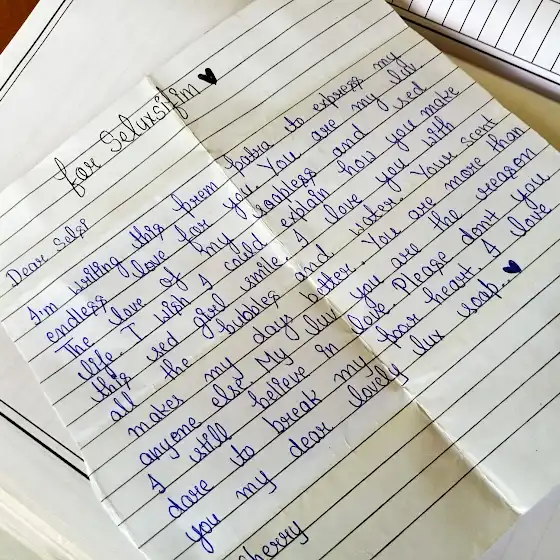 for Seluxsifim ♥
Dear Selsi
I'm writing this prem patra to express my
endless love for you. You are my lil
The love of my soapless and sed
life. I wish I could explain how you make
this sed girl smile. I love you with
all the bubbles and water. Your scent
makes my days better. You are more than
anyone else. My luv you are the reason
I still believe in love. Please don't you
dare to break my poor heart. I love
you my dear lovely lux soap..♥
cherry